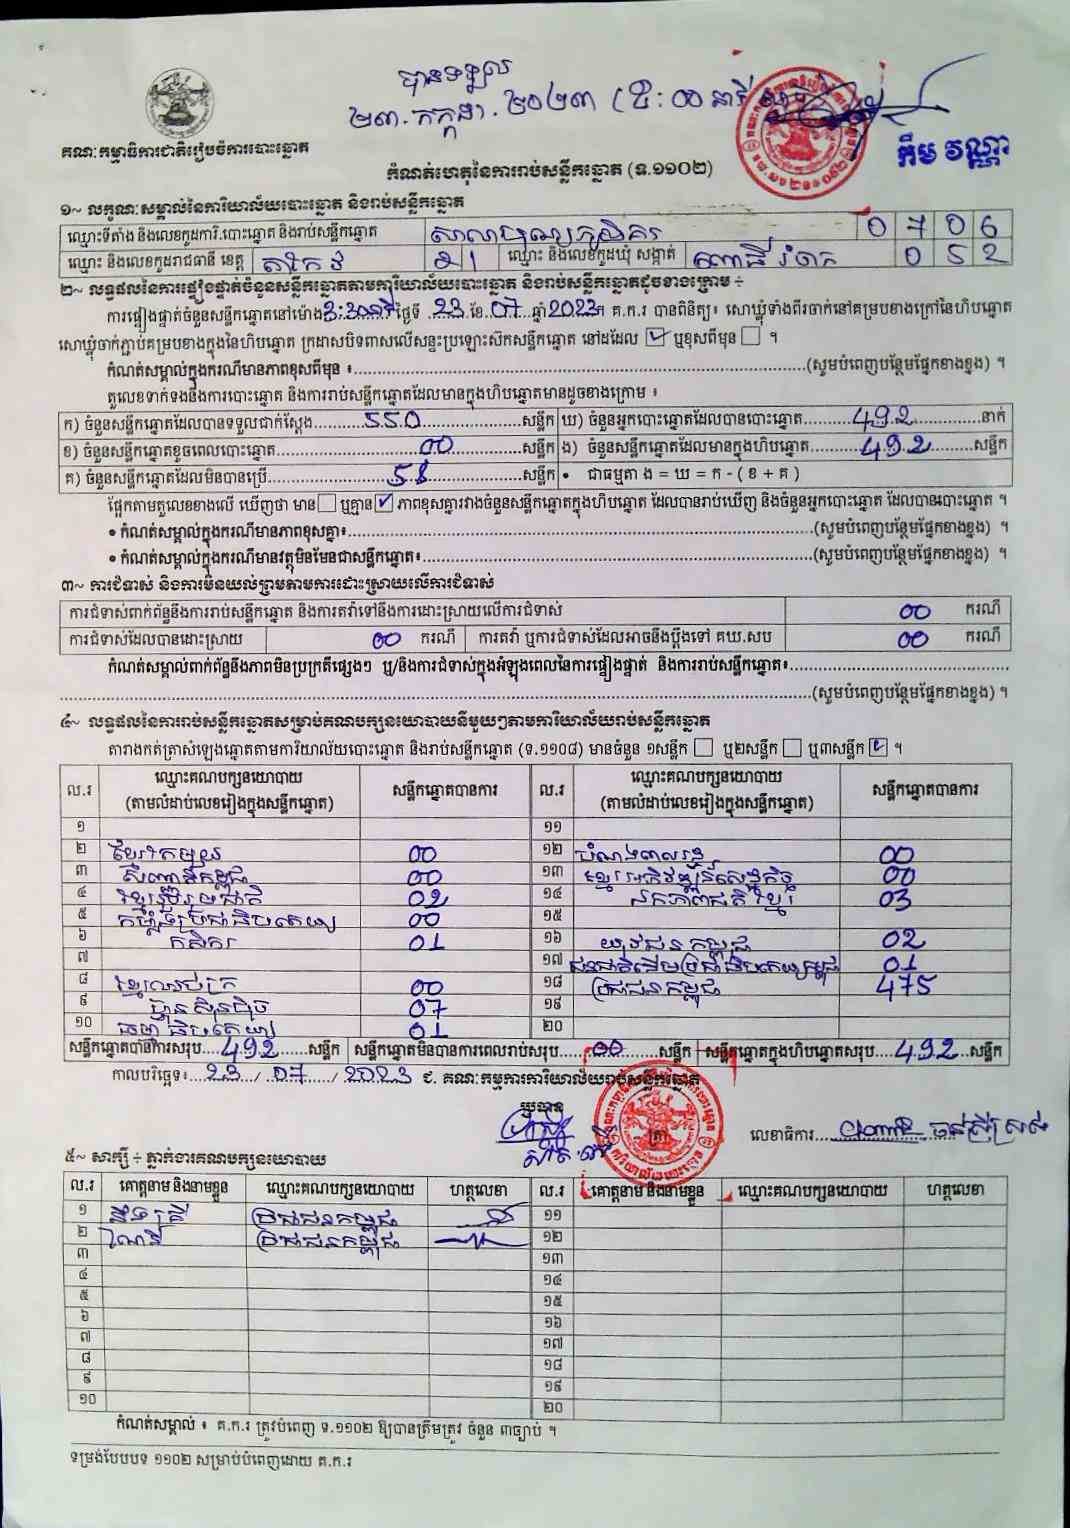 បានទទួល
២៣.កក្កដា.២០២៣ (៥:០០ នាទី
កឹម វណ្ណា
គណៈកម្មាធិការជាតិរៀបចំការបោះឆ្នោត
កំណត់ហេតុនៃការរាប់សន្លឹកឆ្នោត (ទ.១១០២)
១~ លក្ខណៈសម្គាល់នៃការិយាល័យបោះឆ្នោត និងរាប់សន្លឹកឆ្នោត
ឈ្មោះទីតាំង និងលេខកូដការិ.បោះឆ្នោត និងរាប់សន្លឹកឆ្នោត 0706
ឈ្មោះ និងលេខកូដរាជធានី ខេត្ត តាកែវ 21 ឈ្មោះ និងលេខកូដឃុំ សង្កាត់ 052
២~ លទ្ធផលនៃការផ្ទៀងផ្ទាត់ចំនួនសន្លឹកឆ្នោតតាមការិយាល័យបោះឆ្នោត និងរាប់សន្លឹកឆ្នោតដូចខាងក្រោម ÷
ការផ្ទៀងផ្ទាត់ចំនួនសន្លឹកឆ្នោតនៅម៉ោង 3:30នាទី ថ្ងៃទី 23 ខែ 07 ឆ្នាំ 2023។ គ.ក.រ បានពិនិត្យ៖ សោឃ្លុំទាំងពីរចាក់នៅគម្របខាងក្រៅនៃហិបឆ្នោត
សោឃ្លុំចាក់ភ្ជាប់គម្របខាងក្នុងនៃហិបឆ្នោត ក្រដាសបិទពាសលើសន្ទះប្រឡោះស៊កសន្លឹកឆ្នោត នៅដដែល ☑ ឬខុសពីមុន ☐ ។
កំណត់សម្គាល់ក្នុងករណីមានភាពខុសពីមុន ៖ (សូមបំពេញបន្ថែមផ្នែកខាងខ្នង) ។
តួលេខទាក់ទងនឹងការបោះឆ្នោត និងការរាប់សន្លឹកឆ្នោតដែលមានក្នុងហិបឆ្នោតមានដូចខាងក្រោម ៖
ក) ចំនួនសន្លឹកឆ្នោតដែលបានទទួលជាក់ស្តែង 550 សន្លឹក ឃ) ចំនួនអ្នកបោះឆ្នោតដែលបានបោះឆ្នោត 492 នាក់
ខ) ចំនួនសន្លឹកឆ្នោតខូចពេលបោះឆ្នោត 00 សន្លឹក ង) ចំនួនសន្លឹកឆ្នោតដែលមានក្នុងហិបឆ្នោត 492 សន្លឹក
គ) ចំនួនសន្លឹកឆ្នោតដែលមិនបានប្រើ 58 សន្លឹក • ជាធម្មតា ង = ឃ = ក - ( ខ + គ )
ផ្អែកតាមតួលេខខាងលើ ឃើញថា មាន ☐ ឬគ្មាន ☑ ភាពខុសគ្នារវាងចំនួនសន្លឹកឆ្នោតក្នុងហិបឆ្នោត ដែលបានរាប់ឃើញ និងចំនួនអ្នកបោះឆ្នោត ដែលបានបោះឆ្នោត ។
• កំណត់សម្គាល់ក្នុងករណីមានភាពខុសគ្នា៖ (សូមបំពេញបន្ថែមផ្នែកខាងខ្នង) ។
• កំណត់សម្គាល់ក្នុងករណីមានវត្ថុមិនមែនជាសន្លឹកឆ្នោត៖ (សូមបំពេញបន្ថែមផ្នែកខាងខ្នង) ។
៣~ ការជំទាស់ និងការមិនយល់ព្រមតាមការដោះស្រាយលើការជំទាស់
ការជំទាស់ពាក់ព័ន្ធនឹងការរាប់សន្លឹកឆ្នោត និងការតវ៉ាទៅនឹងការដោះស្រាយលើការជំទាស់ 00 ករណី
ការជំទាស់ដែលបានដោះស្រាយ 00 ករណី ការតវ៉ា ឬការជំទាស់ដែលអាចនឹងប្តឹងទៅ គឃ.សប 00 ករណី
កំណត់សម្គាល់ពាក់ព័ន្ធនឹងភាពមិនប្រក្រតីផ្សេងៗ ឬ/និងការជំទាស់ក្នុងអំឡុងពេលនៃការផ្ទៀងផ្ទាត់ និងការរាប់សន្លឹកឆ្នោត៖
(សូមបំពេញបន្ថែមផ្នែកខាងខ្នង) ។
៤~ លទ្ធផលនៃការរាប់សន្លឹកឆ្នោតសម្រាប់គណបក្សនយោបាយនីមួយៗតាមការិយាល័យរាប់សន្លឹកឆ្នោត
តារាងកត់ត្រាសំឡេងឆ្នោតតាមការិយាល័យបោះឆ្នោត និងរាប់សន្លឹកឆ្នោត (ទ.១១០៨) មានចំនួន ១សន្លឹក ☐ ឬ២សន្លឹក ☐ ឬ៣សន្លឹក ☑ ។
ល.រ ឈ្មោះគណបក្សនយោបាយ (តាមលំដាប់លេខរៀងក្នុងសន្លឹកឆ្នោត) សន្លឹកឆ្នោតបានការ ល.រ ឈ្មោះគណបក្សនយោបាយ (តាមលំដាប់លេខរៀងក្នុងសន្លឹកឆ្នោត) សន្លឹកឆ្នោតបានការ
១ ១១
២ ខ្មែរតែមួយ 00 ១២ បំណងពលរដ្ឋ 00
៣ សញ្ជាតិកម្ពុជា 00 ១៣ ខ្មែរអភិវឌ្ឍន៍សេដ្ឋកិច្ច 00
៤ ខ្មែររួបរួមជាតិ 02 ១៤ ឯកភាពជាតិខ្មែរ 03
៥ កម្លាំងប្រជាធិបតេយ្យ 00 ១៥
៦ កសិករ 01 ១៦ យុវជនកម្ពុជា 02
៧ ១៧ ជនជាតិដើមប្រជាធិបតេយ្យកម្ពុជា 01
៨ ខ្មែរឈប់ក្រ 00 ១៨ ប្រជាជនកម្ពុជា 475
៩ ហ៊្វុនស៊ិនប៉ិច 07 ១៩
១០ ធម្មាធិបតេយ្យ 01 ២០
សន្លឹកឆ្នោតបានការសរុប 492 សន្លឹក សន្លឹកឆ្នោតមិនបានការពេលរាប់សរុប 00 សន្លឹក សន្លឹកឆ្នោតក្នុងហិបឆ្នោតសរុប 492 សន្លឹក
កាលបរិច្ឆេទ៖ 23 / 07 / 2023 ជ. គណៈកម្មការការិយាល័យរាប់សន្លឹកឆ្នោត
ប្រធាន
ត្រា
លេខាធិការ
៥~ សាក្សី ÷ ភ្នាក់ងារគណបក្សនយោបាយ
ល.រ គោត្តនាម និងនាមខ្លួន ឈ្មោះគណបក្សនយោបាយ ហត្ថលេខា ល.រ គោត្តនាម និងនាមខ្លួន ឈ្មោះគណបក្សនយោបាយ ហត្ថលេខា
១ ប្រជាជនកម្ពុជា ១១
២ ប្រជាជនកម្ពុជា ១២
៣ ១៣
៤ ១៤
៥ ១៥
៦ ១៦
៧ ១៧
៨ ១៨
៩ ១៩
១០ ២០
កំណត់សម្គាល់ ៖ គ.ក.រ ត្រូវបំពេញ ទ.១១០២ ឱ្យបានត្រឹមត្រូវ ចំនួន ៣ច្បាប់ ។
ទម្រង់បែបបទ ១១០២ សម្រាប់បំពេញដោយ គ.ក.រ